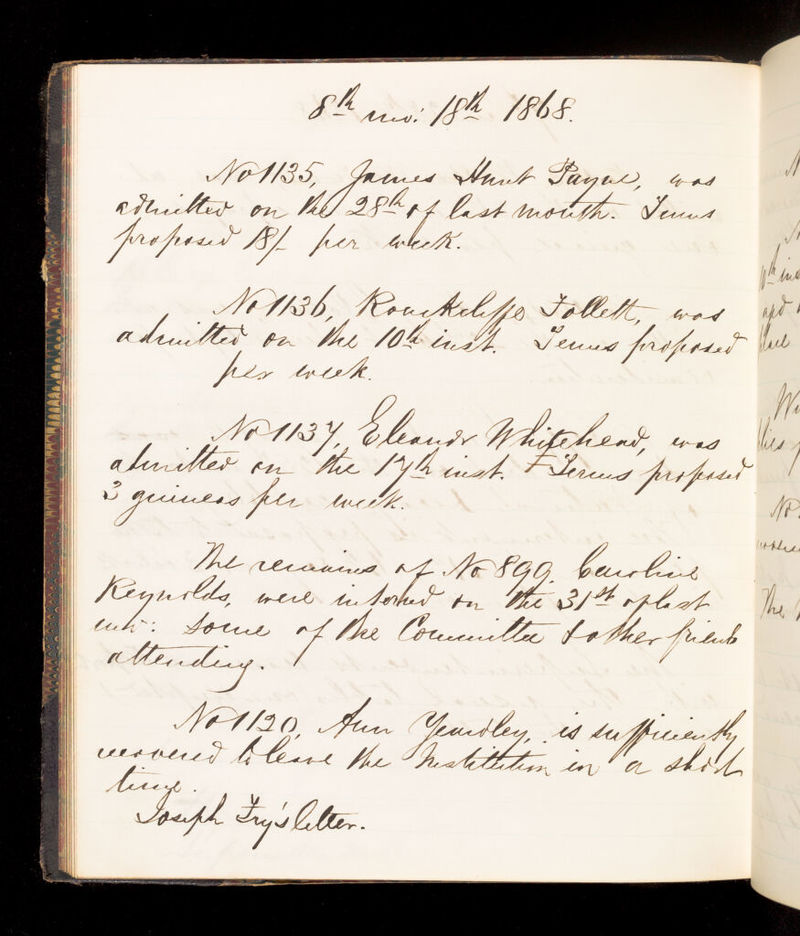 8th mo: 18th 1868.
No 1135, James Hunt Payne, was
admitted on the 28th of last month. Terms
proposed 18/- per week.
No 1136, Follett, was
admitted on the 10th inst. Terms proposed
per week.
No 1137, Eleanor Whitehead, was
admitted on the 17th inst. Terms proposed
3 guineas per week.
The remains of No 899, Caroline
Reynolds, were interred on the 31st of last
mo: some of the Committee & other friends
attending.
No 1120, Ann Yeardley, is sufficiently
recovered to leave the Institution in a short
time.
Joseph Fry's letter.